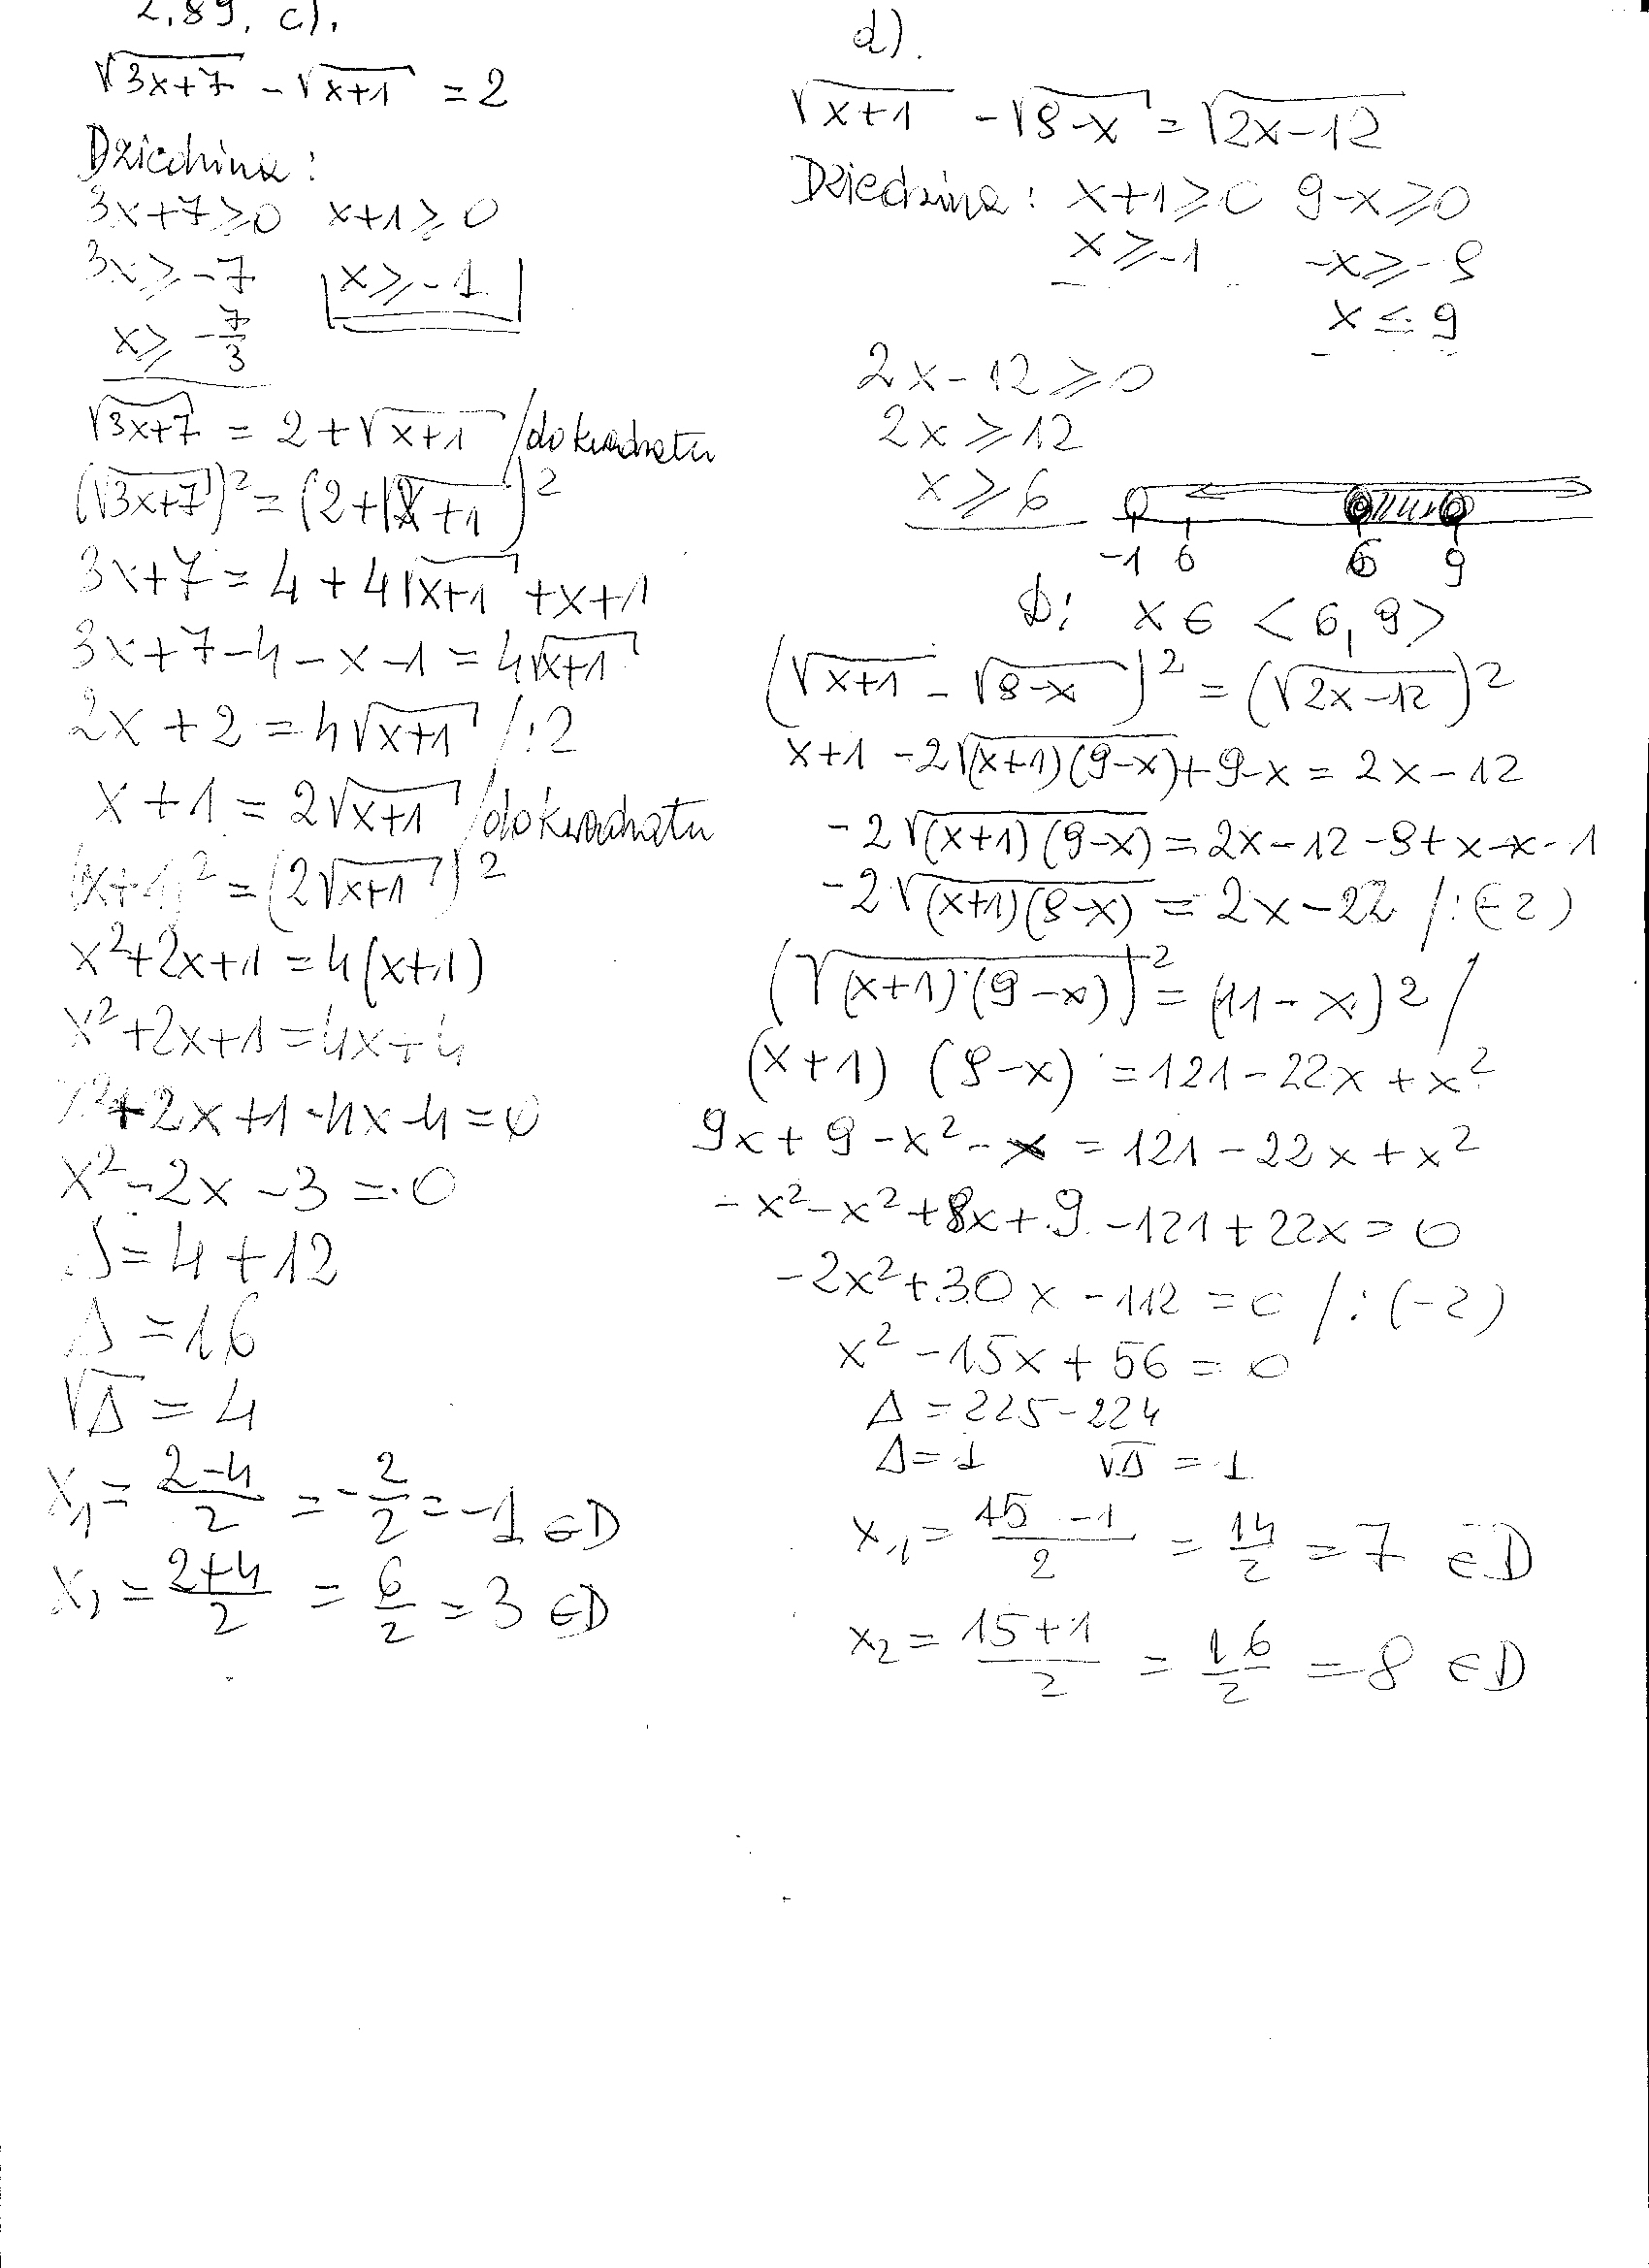 2.89. c).
√(3x+7) - √(x+1) = 2
Dziedzina:
3x+7≥0 x+1≥0
3x≥-7 x≥-1
x≥ -7/3
√(3x+7) = 2+√(x+1) /do kwadratu
(√(3x+7))² = (2+√(x+1))²
3x+7 = 4+4√(x+1) +x+1
3x+7-4-x-1 = 4√(x+1)
2x+2 = 4√(x+1) /:2
x+1 = 2√(x+1) /do kwadratu
(x+1)² = (2√(x+1))²
x²+2x+1 = 4(x+1)
x²+2x+1 = 4x+4
x²+2x+1-4x-4=0
x²-2x-3=0
Δ=4+12
Δ=16
√Δ=4
x₁= (2-4)/2 = -2/2 = -1 ∈D
x₂= (2+4)/2 = 6/2 = 3 ∈D
d).
√(x+1) - √(9-x) = √(2x-12)
Dziedzina: x+1≥0 9-x≥0
x≥-1 -x≥-9
x≤9
2x-12≥0
2x≥12
x≥6
-1 0 6 9
D: x∈<6,9>
(√(x+1) - √(9-x))² = (√(2x-12))²
x+1 -2√((x+1)(9-x)) +9-x = 2x-12
-2√((x+1)(9-x)) = 2x-12-9+x-x-1
-2√((x+1)(9-x)) = 2x-22 /:(-2)
(√((x+1)(9-x)))² = (11-x)² /
(x+1) (9-x) = 121-22x+x²
9x+9-x²-x = 121-22x+x²
-x²-x²+8x+9-121+22x=0
-2x²+30x-112=0 /:(-2)
x²-15x+56=0
Δ=225-224
Δ=1 √Δ=1
x₁= (15-1)/2 = 14/2 = 7 ∈D
x₂= (15+1)/2 = 16/2 = 8 ∈D